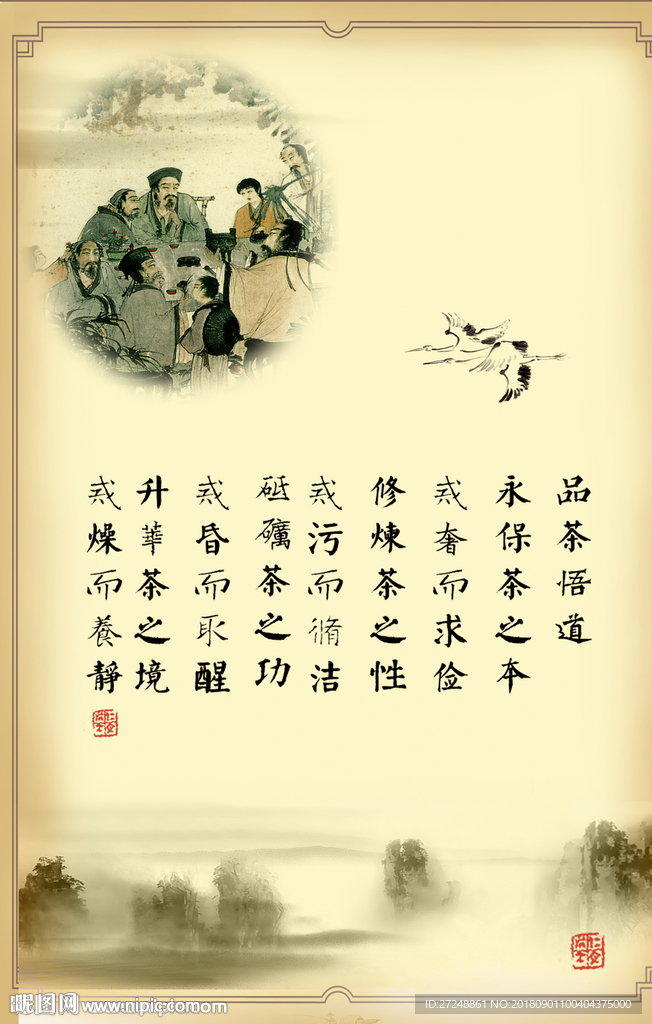 品茶悟道
永保茶之本
戒奢而求俭
修煉茶之性
戒污而脩洁
砥礪茶之功
戒昏而取醒
升華茶之境
戒燥而養靜
昵图网 www.nipic.com
ID:27248861 NO:20180901100404375000